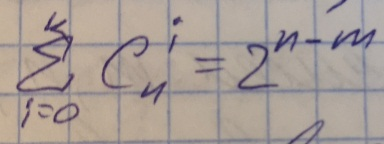 \sum_{i=0}^{k} C_n^i = 2^{n-m}